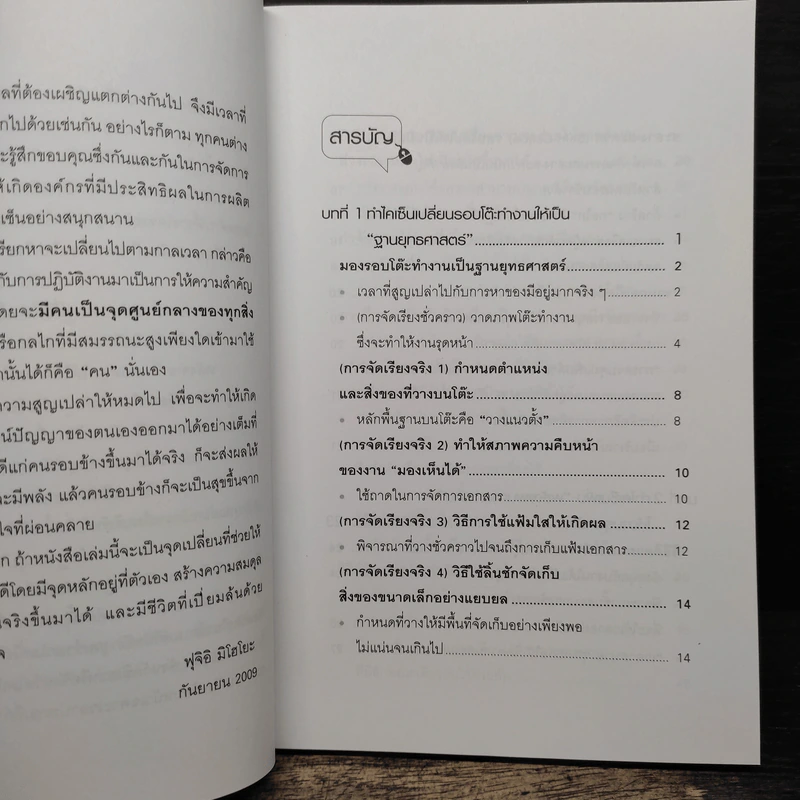 ลที่ต้องเผชิญแตกต่างกันไป จึงมีเวลาที่
กไปด้วยเช่นกัน อย่างไรก็ตาม ทุกคนต่าง
ะรู้สึกขอบคุณซึ่งกันและกันในการจัดการ
ห้เกิดองค์กรที่มีประสิทธิผลในการผลิต
เซ็นอย่างสนุกสนาน
รียกหาจะเปลี่ยนไปตามกาลเวลา กล่าวคือ
กับการปฏิบัติงานมาเป็นการให้ความสำคัญ
ดยจะมีคนเป็นจุดศูนย์กลางของทุกสิ่ง
รือกลไกที่มีสมรรถนะสูงเพียงใดเข้ามาใช้
านั้นได้ก็คือ “คน” นั่นเอง
ความสูญเปล่าให้หมดไป เพื่อจะทำให้เกิด
น์ปัญญาของตนเองออกมาได้อย่างเต็มที่
ดีแก่คนรอบข้างขึ้นมาได้จริง ก็จะส่งผลให้
ะมีพลัง แล้วคนรอบข้างก็จะเป็นสุขขึ้นจาก
ใจที่ผ่อนคลาย
ก ถ้าหนังสือเล่มนี้จะเป็นจุดเปลี่ยนที่ช่วยให้
ดีโดยมีจุดหลักอยู่ที่ตัวเอง สร้างความสมดุล
นจริงขึ้นมาได้ และมีชีวิตที่เปี่ยมล้นด้วย
จ
ฟุจิอิ มิโฮโยะ
กันยายน 2009
สารบัญ
บทที่ 1 ทำไคเซ็นเปลี่ยนรอบโต๊ะทำงานให้เป็น
“ฐานยุทธศาสตร์”.......................................... 1
มองรอบโต๊ะทำงานเป็นฐานยุทธศาสตร์...................... 2
• เวลาที่สูญเปล่าไปกับการหาของมีอยู่มากจริง ๆ............ 2
• (การจัดเรียงชั่วคราว) วาดภาพโต๊ะทำงาน
ซึ่งจะทำให้งานรุดหน้า........................................ 4
(การจัดเรียงจริง 1) กำหนดตำแหน่ง
และสิ่งของที่วางบนโต๊ะ........................................ 8
• หลักพื้นฐานบนโต๊ะคือ “วางแนวตั้ง”......................... 8
(การจัดเรียงจริง 2) ทำให้สภาพความคืบหน้า
ของงาน “มองเห็นได้”......................................... 10
• ใช้ถาดในการจัดการเอกสาร.................................. 10
(การจัดเรียงจริง 3) วิธีการใช้แฟ้มใสให้เกิดผล.............. 12
• พิจารณาที่วางชั่วคราวไปจนถึงการเก็บแฟ้มเอกสาร......... 12
(การจัดเรียงจริง 4) วิธีใช้ลิ้นชักจัดเก็บ
สิ่งของขนาดเล็กอย่างแยบยล................................. 14
• กำหนดที่วางให้มีพื้นที่จัดเก็บอย่างเพียงพอ
ไม่แน่นจนเกินไป.............................................. 14